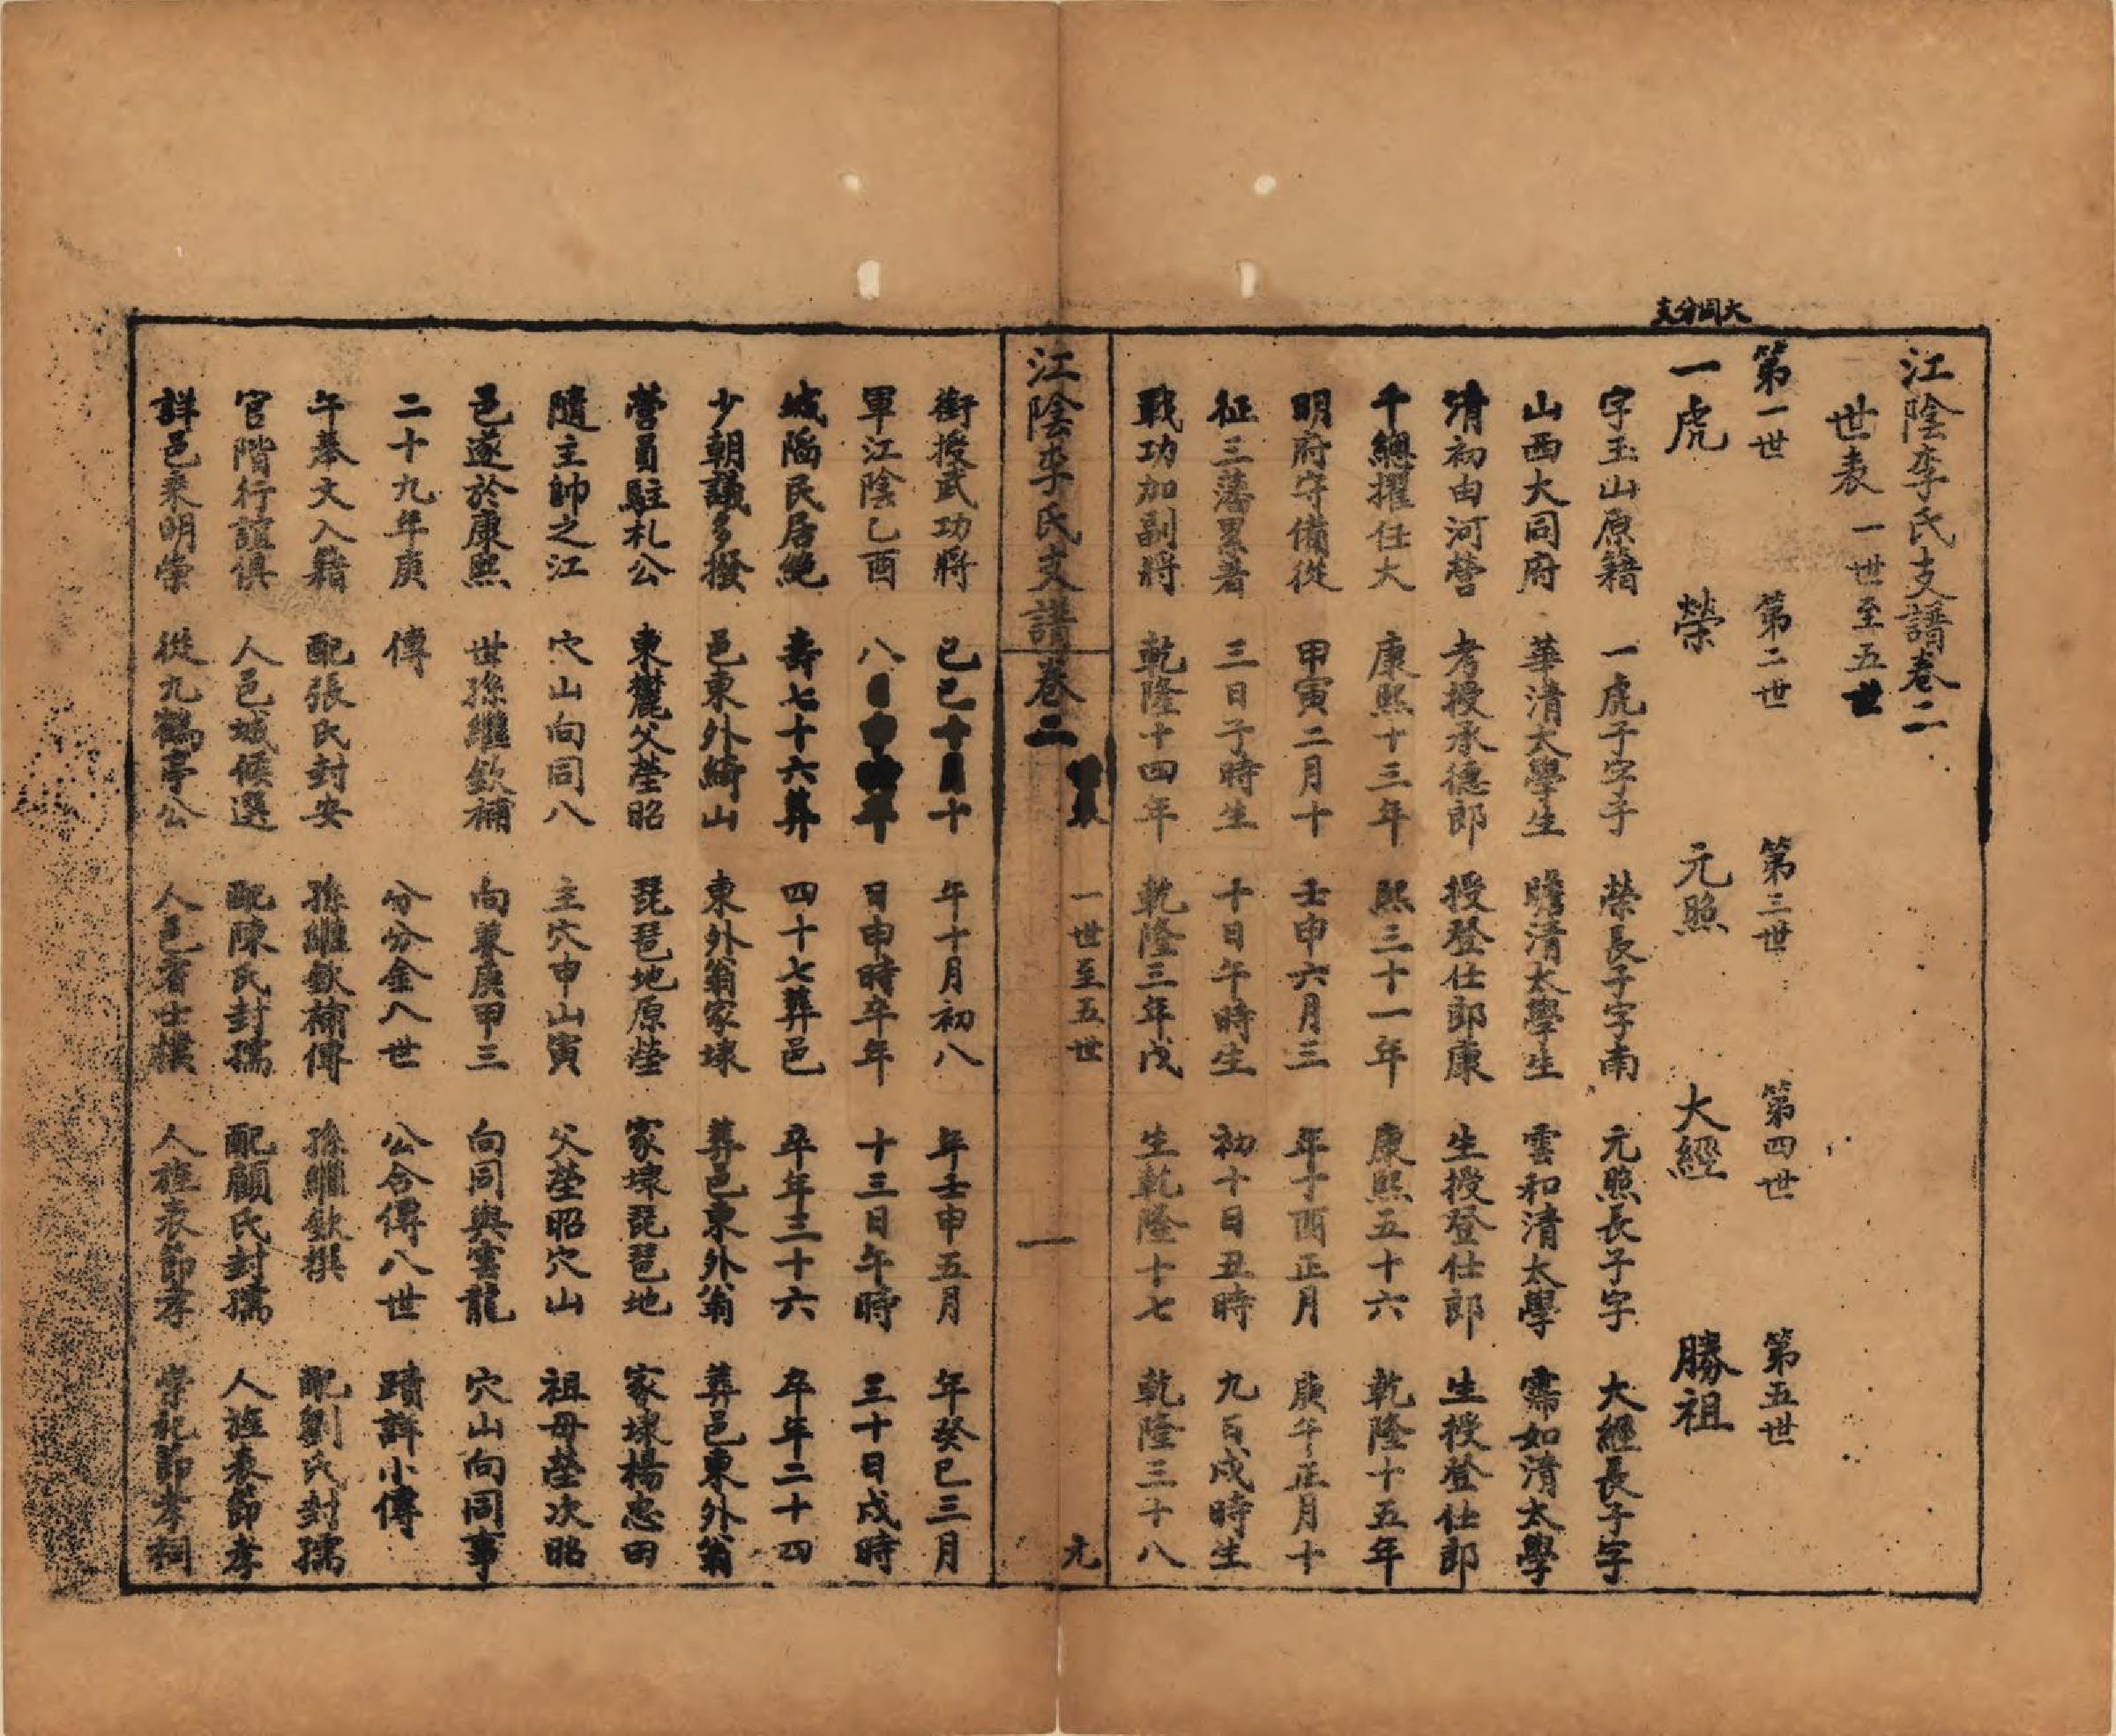 江陰李氏支譜卷二
世表 一世至五世
大同分支
第一世 第二世 第三世 第四世 第五世
一虎 榮 元照 大經 勝祖
字玉山原籍 一虎子字手 榮長子字南 元照長子字 大經長子字
山西大同府 華清太學生 瞻清太學生 雲和清太學 霈如清太學
清初由河營 考授承德郎 授登仕郎康 生授登仕郎 生授登仕郎
千總擢任大 康熙十三年 熙三十一年 康熙五十六 乾隆十五年
明府守備從 甲寅二月十 壬申六月三 年丁酉正月 庚午正月十
征三藩累著 三日子時生 十日午時生 初十日丑時 九日戌時生
戰功加副將 乾隆十四年 乾隆三年戊 生乾隆十七 乾隆三十八
江陰李氏支譜卷二 世表 一世至五世 一 元
銜授武功將 己巳十月十 午十月初八 年壬申五月 年癸巳三月
軍江陰乙酉 八 日申時卒年 十三日午時 三十日戌時
城陷民居絶 壽七十六葬 四十七葬邑 卒年三十六 卒年二十四
少朝議多撥 邑東外綺山 東外翁家埭 葬邑東外翁 葬邑東外翁
營員駐札公 東麓父塋昭 琵琶地原塋 家埭琵琶地 家埭楊忠田
隨主帥之江 穴山向同八 主穴申山寅 父塋昭穴山 祖母塋次昭
邑遂於康熙 世孫繼欽補 向兼庚甲三 向同與雲龍 穴山向同事
二十九年庚 傳 分分金八世 公合傳八世 蹟詳小傳
午奉文入籍 配張氏封安 孫繼欽補傳 孫繼欽撰 配劉氏封孺
官階行誼俱 人邑城候選 配陳氏封孺 配顧氏封孺 人旌表節孝
詳邑乘明崇 從九鶴亭公 人邑 士樸 人旌表節孝 崇祀節孝祠